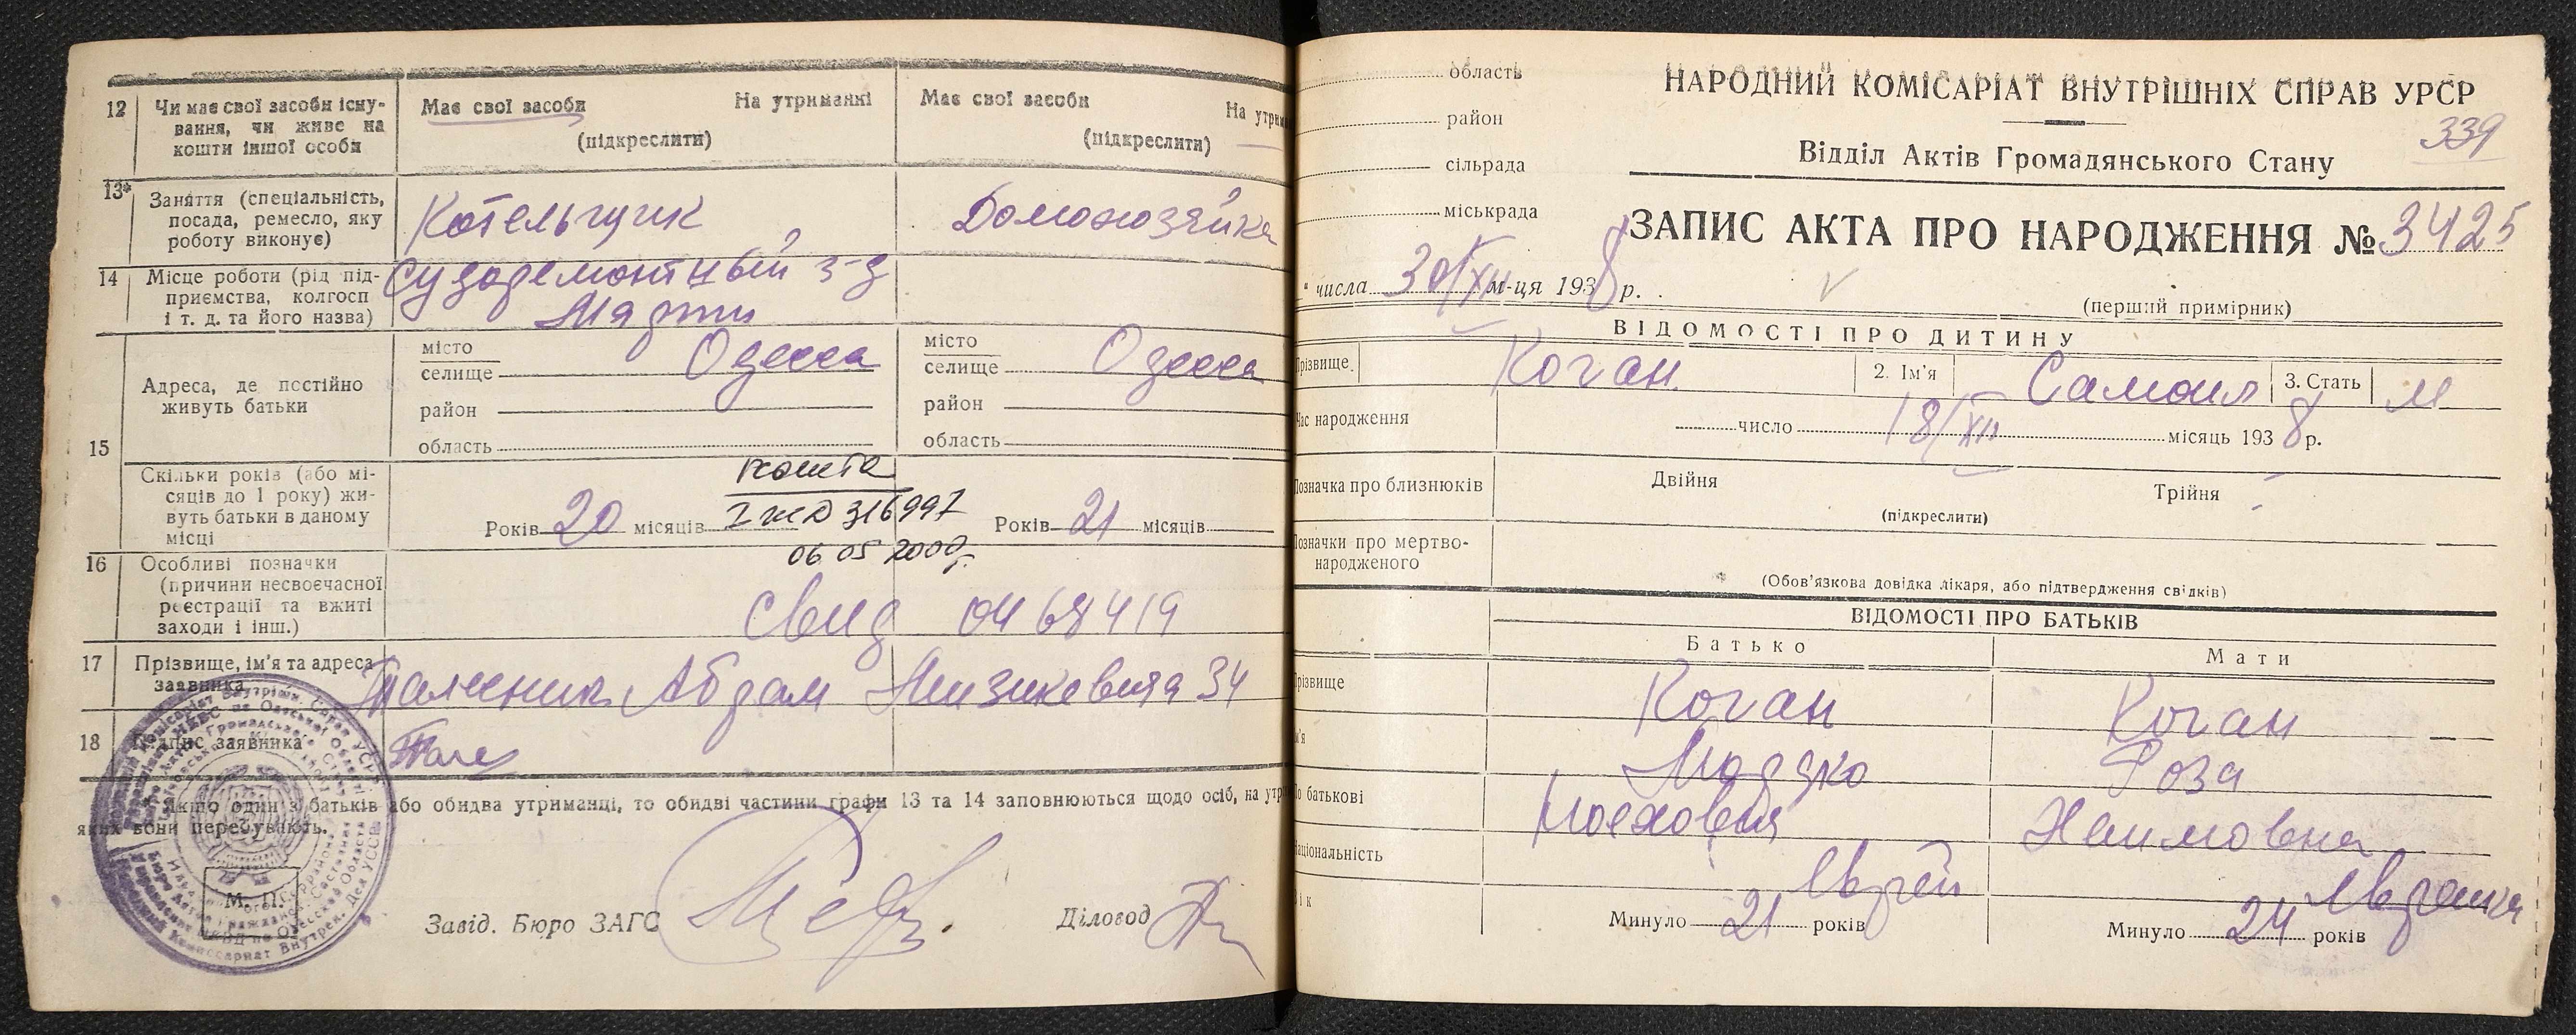 12
Чи має свої засоби існу-
вання, чи живе на
кошти іншої особи
Має свої засоби
На утриманкі
(підкреслити)
Має свої засоби
На утрим
(підкреслити)
13*
Заняття (спеціальність,
посада, ремесло, яку
роботу виконує)
Котельщик
Домохозяйка
14
Місце роботи (рід під-
приємства, колгосп
і т. д. та його назва)
Судоремонтный з-д
Марти
15
Адреса, де постійно
живуть батьки
місто
селище
Одесса
район
область
місто
селище
Одесса
район
область
Скільки років (або мі-
сяців до 1 року) жи-
вуть батьки в даному
місці
Років 20 місяців
Років 21 місяців
І ЖД 316997
06 05 2000р.
16
Особливі позначки
(причини несвоєчасної
реєстрації та вжиті
заходи і інш.)
Свид 0468419
17
Прізвище, ім'я та адреса
заявника
Абрам
34
18
Підпис заявника
* Якщо один з батьків або обидва утриманці, то обидві частини графи 13 та 14 заповнюються щодо осіб, на утри
яких вони перебувають.
М. П.
Завід. Бюро ЗАГС
Діловод
область
район
сільрада
міськрада
НАРОДНИЙ КОМІСАРІАТ ВНУТРІШНІХ СПРАВ УРСР
339
Відділ Актів Громадянського Стану
ЗАПИС АКТА ПРО НАРОДЖЕННЯ № 3425
" числа 30/XII м-ця 1938 р.
(перший примірник)
ВІДОМОСТІ ПРО ДИТИНУ
різвище
Коган
2. Ім'я
Самоил
3. Стать
м
Час народження
число 18/XII місяць 1938 р.
Позначка про близнюків
Двійня
Трійня
(підкреслити)
Позначки про мертво-
народженого
(Обов'язкова довідка лікаря, або підтвердження свідків)
ВІДОМОСТІ ПРО БАТЬКІВ
Батько
Мати
різвище
Коган
Коган
м'я
Мордко
Роза
о батькові
Хаимовна
аціональність
Еврей
Еврейка
Вік
Минуло 21 років
Минуло 24 років